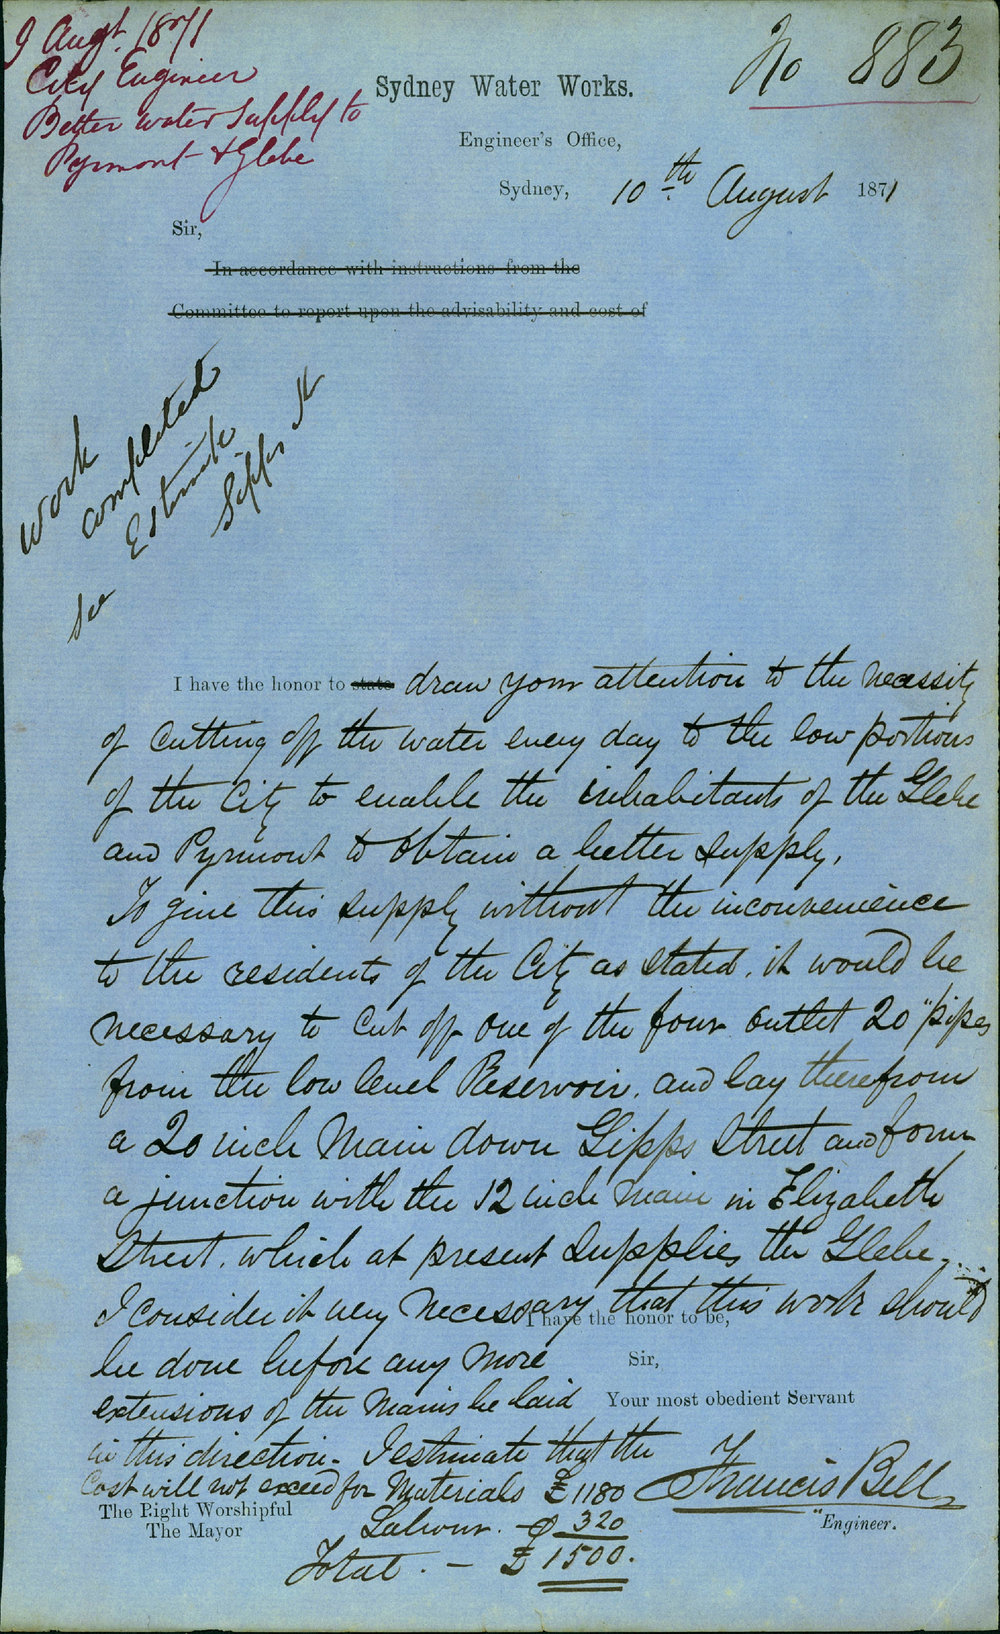 9 Augt. 1871
City Engineer
Better water supply to
Pyrmont & Glebe
No 883
Sydney Water Works.
Engineer's Office,
Sydney, 10th August 1871
Sir,
In accordance with instructions from the
Committee to report upon the advisability and cost of
Work
completed
See Estimate
Gipps St
I have the honor to state draw your attention to the necessity
of cutting off the water every day to the low portions
of the City to enable the inhabitants of the Glebe
and Pyrmont to obtain a better supply.
To give this supply without the inconvenience
to the residents of the City as stated, it would be
necessary to cut off one of the four outlet 20" pipes
from the low level Reservoir, and lay therefrom
a 20 inch Main down Gipps Street and form
a junction with the 12 inch main in Elizabeth
Street, which at present supplies the Glebe.
I consider it very necessary that this work should
I have the honor to be,
be done before any more
Sir,
extensions of the Mains be laid
Your most obedient Servant
in this direction. I estimate that the
Cost will not exceed for Materials £1180
Francis Bell
The Right Worshipful
The Mayor
Engineer.
Labour. - " 320
Total. - £1500.